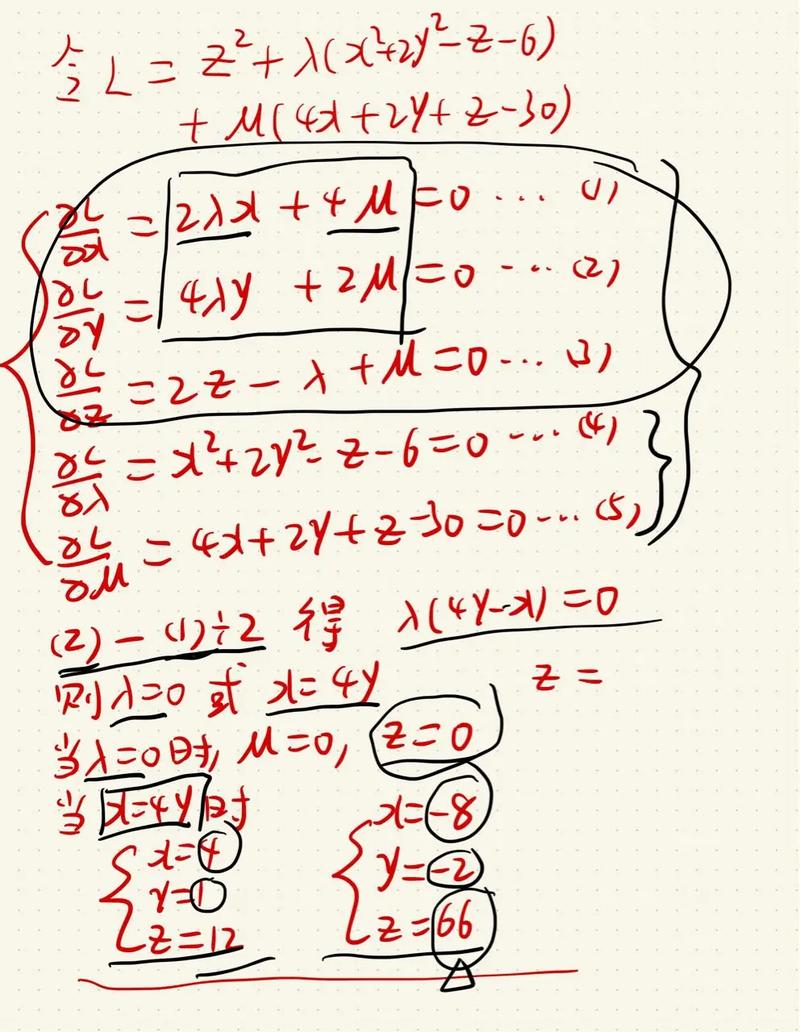 令 L = z² + λ(x²+2y²-z-6)
+ μ(4x+2y+z-30)
∂L/∂x = 2λx + 4μ = 0 ... (1)
∂L/∂y = 4λy + 2μ = 0 ... (2)
∂L/∂z = 2z - λ + μ = 0 ... (3)
∂L/∂λ = x²+2y²-z-6=0 ... (4)
∂L/∂μ = 4x+2y+z-30=0 ... (5)
(2)-(1)÷2 得 λ(4y-x)=0
则λ=0 或 x=4y z=
当λ=0时, μ=0, z=0
当 x=4y 时 x=-8
x=4 y=-2
y=1 z=66
z=12